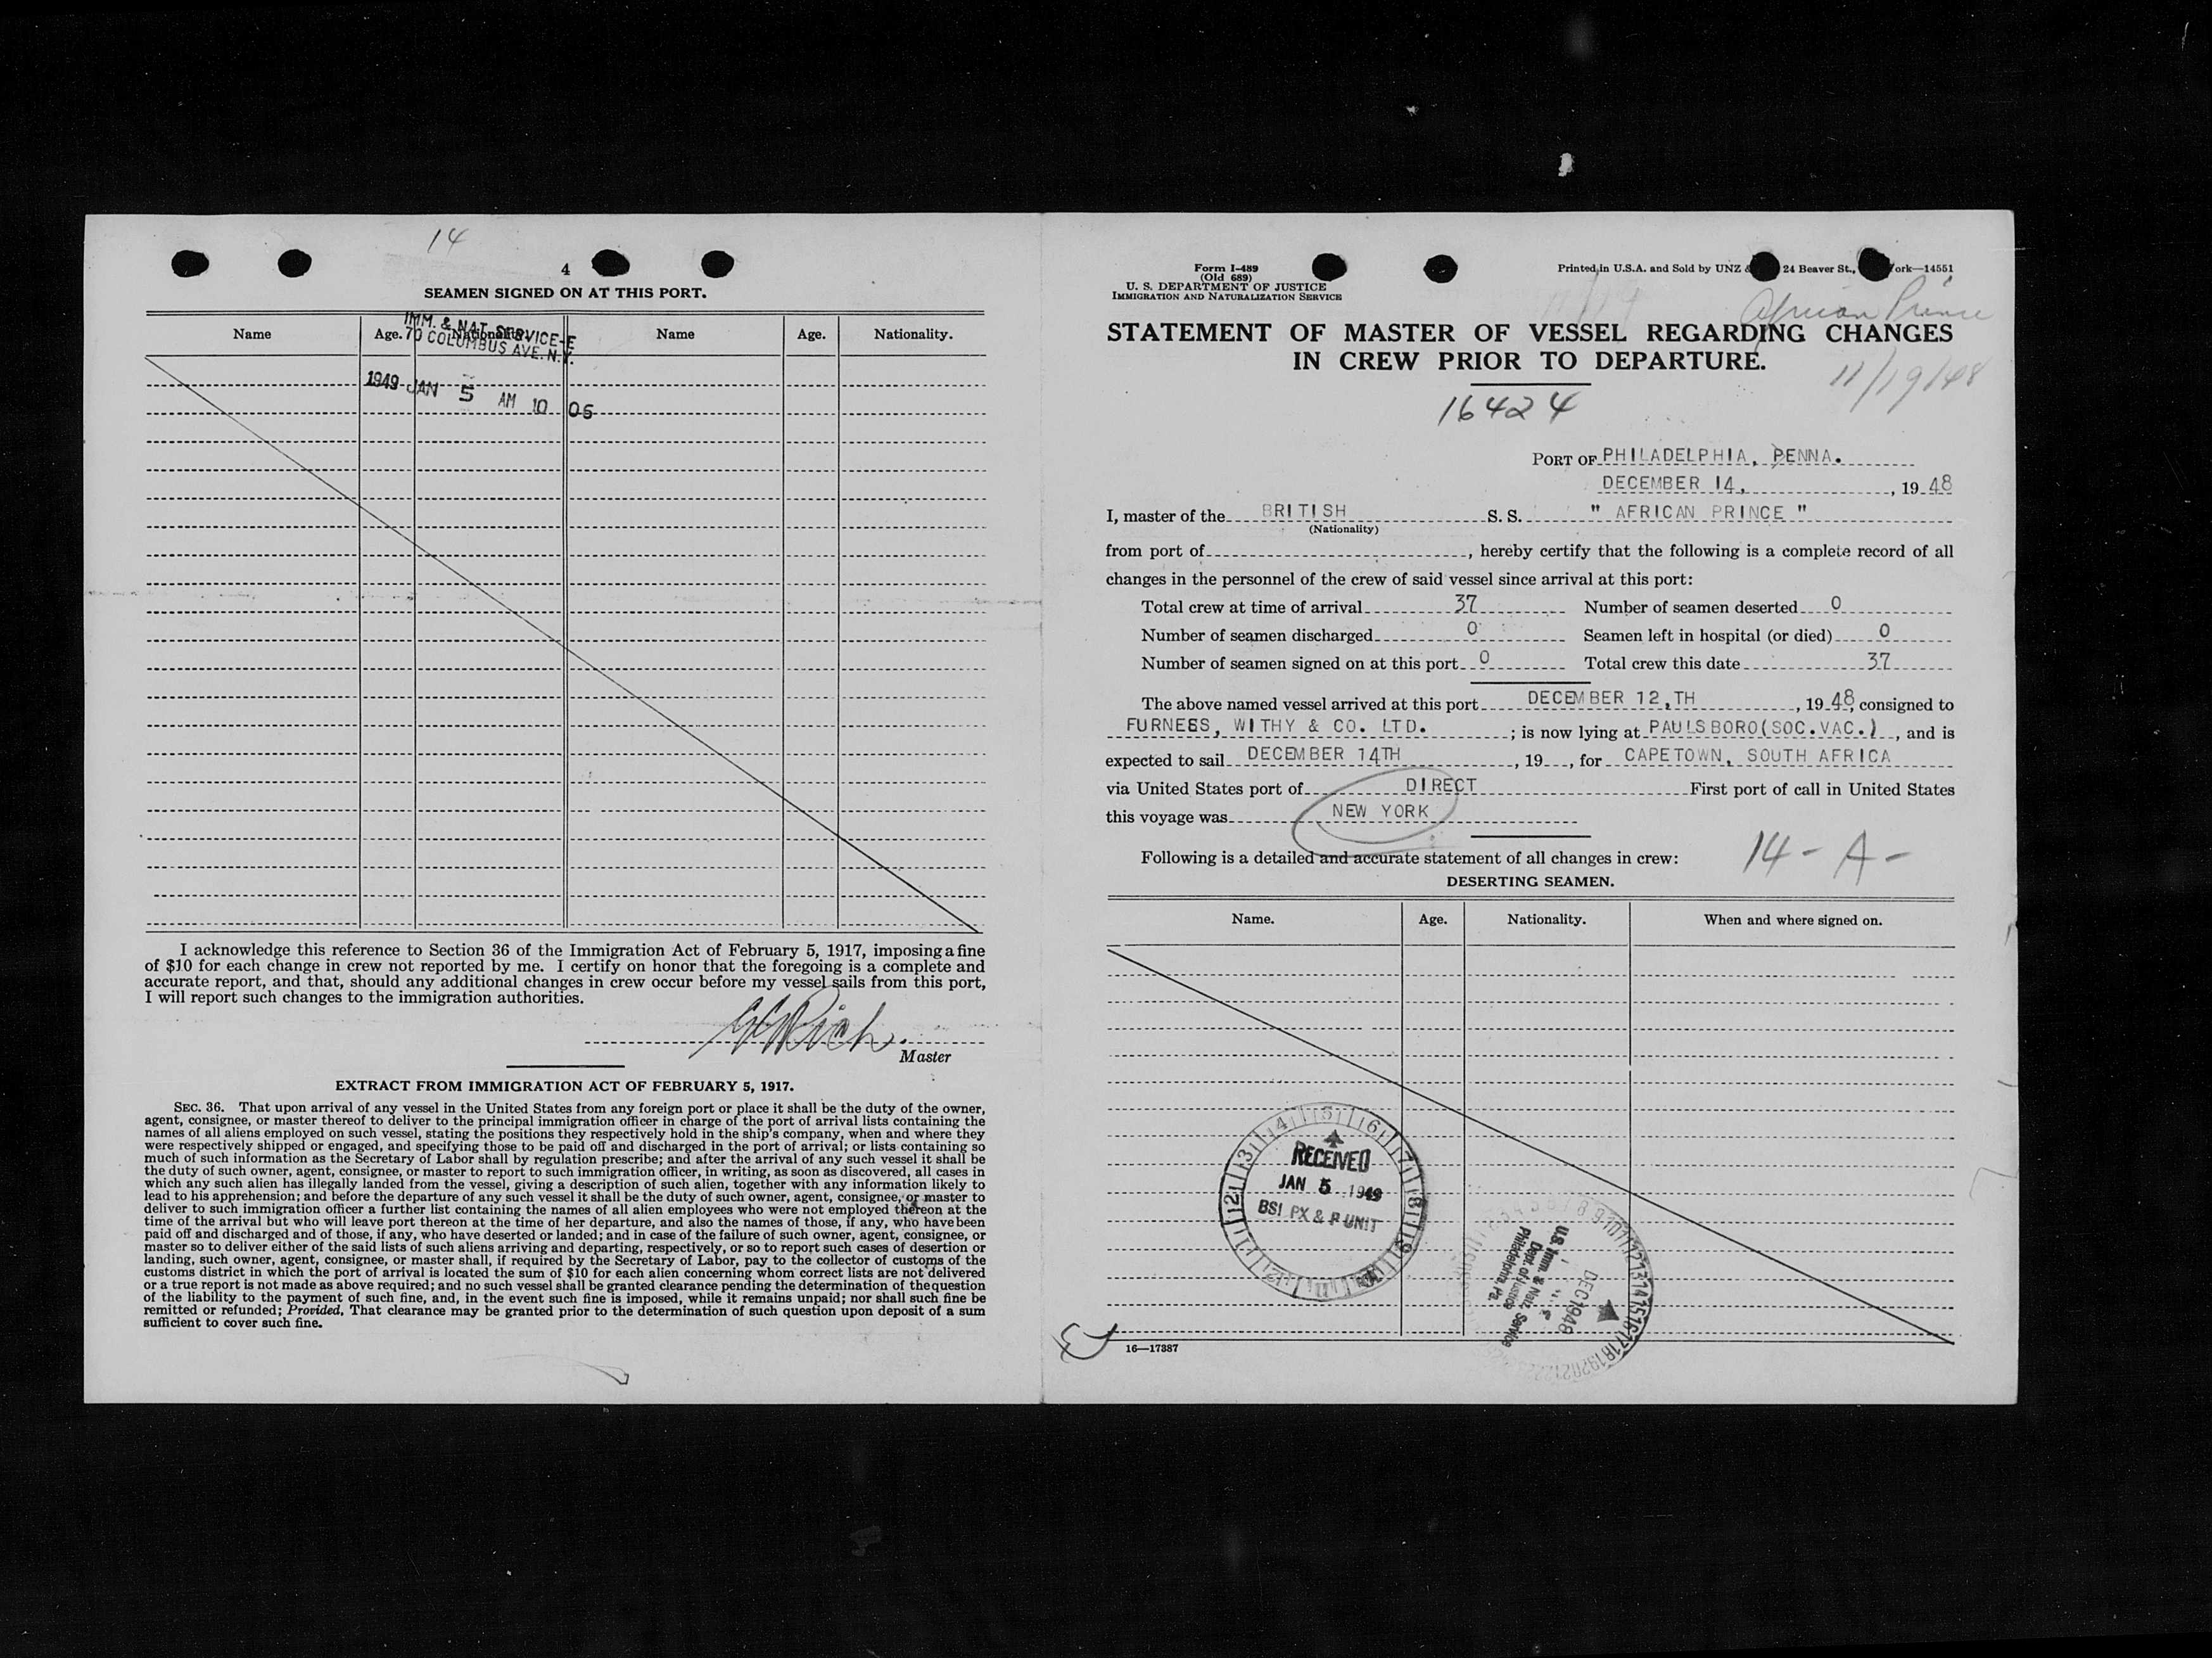 14
4
SEAMEN SIGNED ON AT THIS PORT.
Name Age. Nationality. Name Age. Nationality.
IMM. & NAT. SERVICE-E
70 COLUMBUS AVE. N.Y.
1949 JAN 5 AM 10 05
I acknowledge this reference to Section 36 of the Immigration Act of February 5, 1917, imposing a fine
of $10 for each change in crew not reported by me. I certify on honor that the foregoing is a complete and
accurate report, and that, should any additional changes in crew occur before my vessel sails from this port,
I will report such changes to the immigration authorities.
Rich.
Master
EXTRACT FROM IMMIGRATION ACT OF FEBRUARY 5, 1917.
SEC. 36. That upon arrival of any vessel in the United States from any foreign port or place it shall be the duty of the owner,
agent, consignee, or master thereof to deliver to the principal immigration officer in charge of the port of arrival lists containing the
names of all aliens employed on such vessel, stating the positions they respectively hold in the ship's company, when and where they
were respectively shipped or engaged, and specifying those to be paid off and discharged in the port of arrival; or lists containing so
much of such information as the Secretary of Labor shall by regulation prescribe; and after the arrival of any such vessel it shall be
the duty of such owner, agent, consignee, or master to report to such immigration officer, in writing, as soon as discovered, all cases in
which any such alien has illegally landed from the vessel, giving a description of such alien, together with any information likely to
lead to his apprehension; and before the departure of any such vessel it shall be the duty of such owner, agent, consignee, or master to
deliver to such immigration officer a further list containing the names of all alien employees who were not employed thereon at the
time of the arrival but who will leave port thereon at the time of her departure, and also the names of those, if any, who have been
paid off and discharged and of those, if any, who have deserted or landed; and in case of the failure of such owner, agent, consignee, or
master so to deliver either of the said lists of such aliens arriving and departing, respectively, or so to report such cases of desertion or
landing, such owner, agent, consignee, or master shall, if required by the Secretary of Labor, pay to the collector of customs of the
customs district in which the port of arrival is located the sum of $10 for each alien concerning whom correct lists are not delivered
or a true report is not made as above required; and no such vessel shall be granted clearance pending the determination of the question
of the liability to the payment of such fine, and, in the event such fine is imposed, while it remains unpaid; nor shall such fine be
remitted or refunded; Provided, That clearance may be granted prior to the determination of such question upon deposit of a sum
sufficient to cover such fine.
Form I-489
(Old 689)
U. S. DEPARTMENT OF JUSTICE
IMMIGRATION AND NATURALIZATION SERVICE
Printed in U.S.A. and Sold by UNZ & 24 Beaver St., ork—14551
African Prince
STATEMENT OF MASTER OF VESSEL REGARDING CHANGES
IN CREW PRIOR TO DEPARTURE.
11/19/48
16424
PORT OF PHILADELPHIA, PENNA.
DECEMBER 14, , 19 48
I, master of the BRITISH S. S. " AFRICAN PRINCE "
(Nationality)
from port of , hereby certify that the following is a complete record of all
changes in the personnel of the crew of said vessel since arrival at this port:
Total crew at time of arrival 37 Number of seamen deserted 0
Number of seamen discharged 0 Seamen left in hospital (or died) 0
Number of seamen signed on at this port 0 Total crew this date 37
The above named vessel arrived at this port DECEMBER 12,TH , 19 48, consigned to
FURNESS, WITHY & CO. LTD. ; is now lying at PAULSBORO(SOC.VAC.) , and is
expected to sail DECEMBER 14TH , 19 , for CAPETOWN, SOUTH AFRICA
via United States port of DIRECT First port of call in United States
this voyage was NEW YORK
Following is a detailed and accurate statement of all changes in crew:
14-A-
DESERTING SEAMEN.
Name. Age. Nationality. When and where signed on.
RECEIVED
JAN 5 1949
BSI PX & P UNIT
U.S. Imm. & Natz. Service
Dept. of Justice
Philadelphia, Pa.
DEC 1948
16—17387